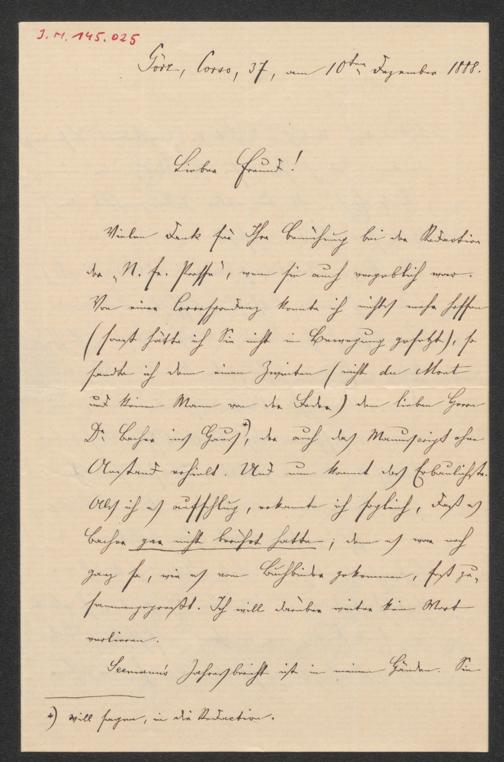 J. N. 145.025
Görz, Corso, 37, am 10ten Dezember 1888.
Lieber Freund!
Vielen Dank für Ihre Bemühung bei der Redaction
der „N. fr. Presse", wenn sie auch vergeblich war.
Von einer Correspondenz konnte ich nichts mehr hoffen
(sonst hätte ich Sie nicht in Bewegung gesetzt), so
sandte ich denn einen Zweiten (nicht de Mont
und keinen Mann von der Feder) dem lieben Herrn
Dr. Bacher ins Haus*), der auch das Manuscript ohne
Anstand erhielt. Und nun kommt das Erbaulichste.
Als ich es aufschlug, erkannte ich sogleich, daß es
Bacher gar nicht berührt hatte; denn es war noch
ganz so, wie es vom Buchbinder gekommen, fest zu-
sammengepreßt. Ich will darüber weiter kein Wort
verlieren.
Seemann's Jahresbericht ist in meinen Händen. Sie
*) will sagen, in die Redaction.